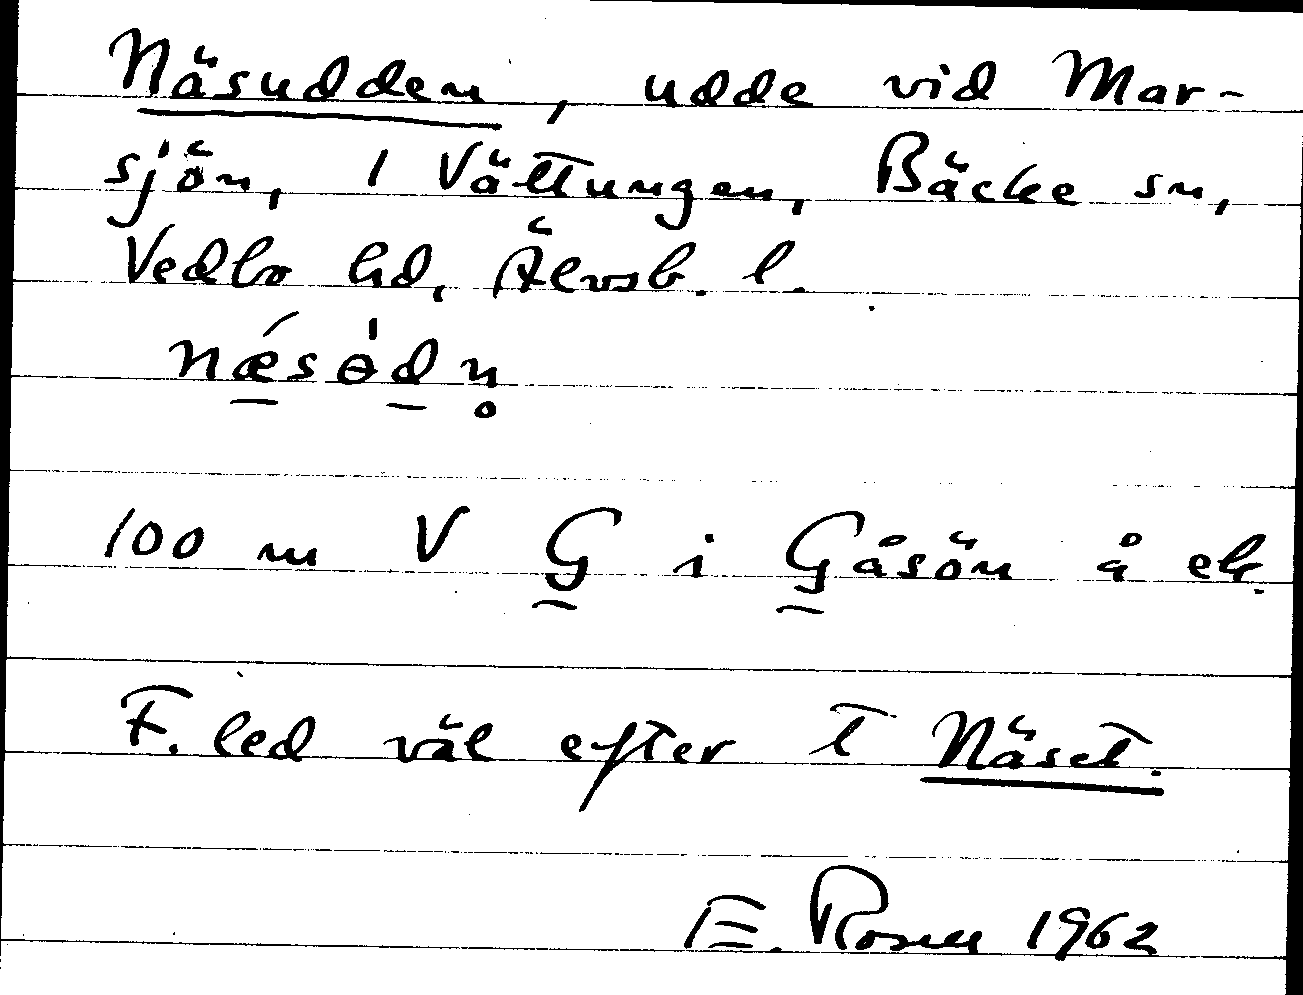 Näsudden, udde vid Mar-
sjön, 1 Vättungen, Bäcke sn,
Vedbo hd, Älvsb. l.
nǽ̲sɵ̍d̲n̥
100 m V G̲ i G̲åsön å ek.
F. led väl efter t Näset.
E. Rosell 1962